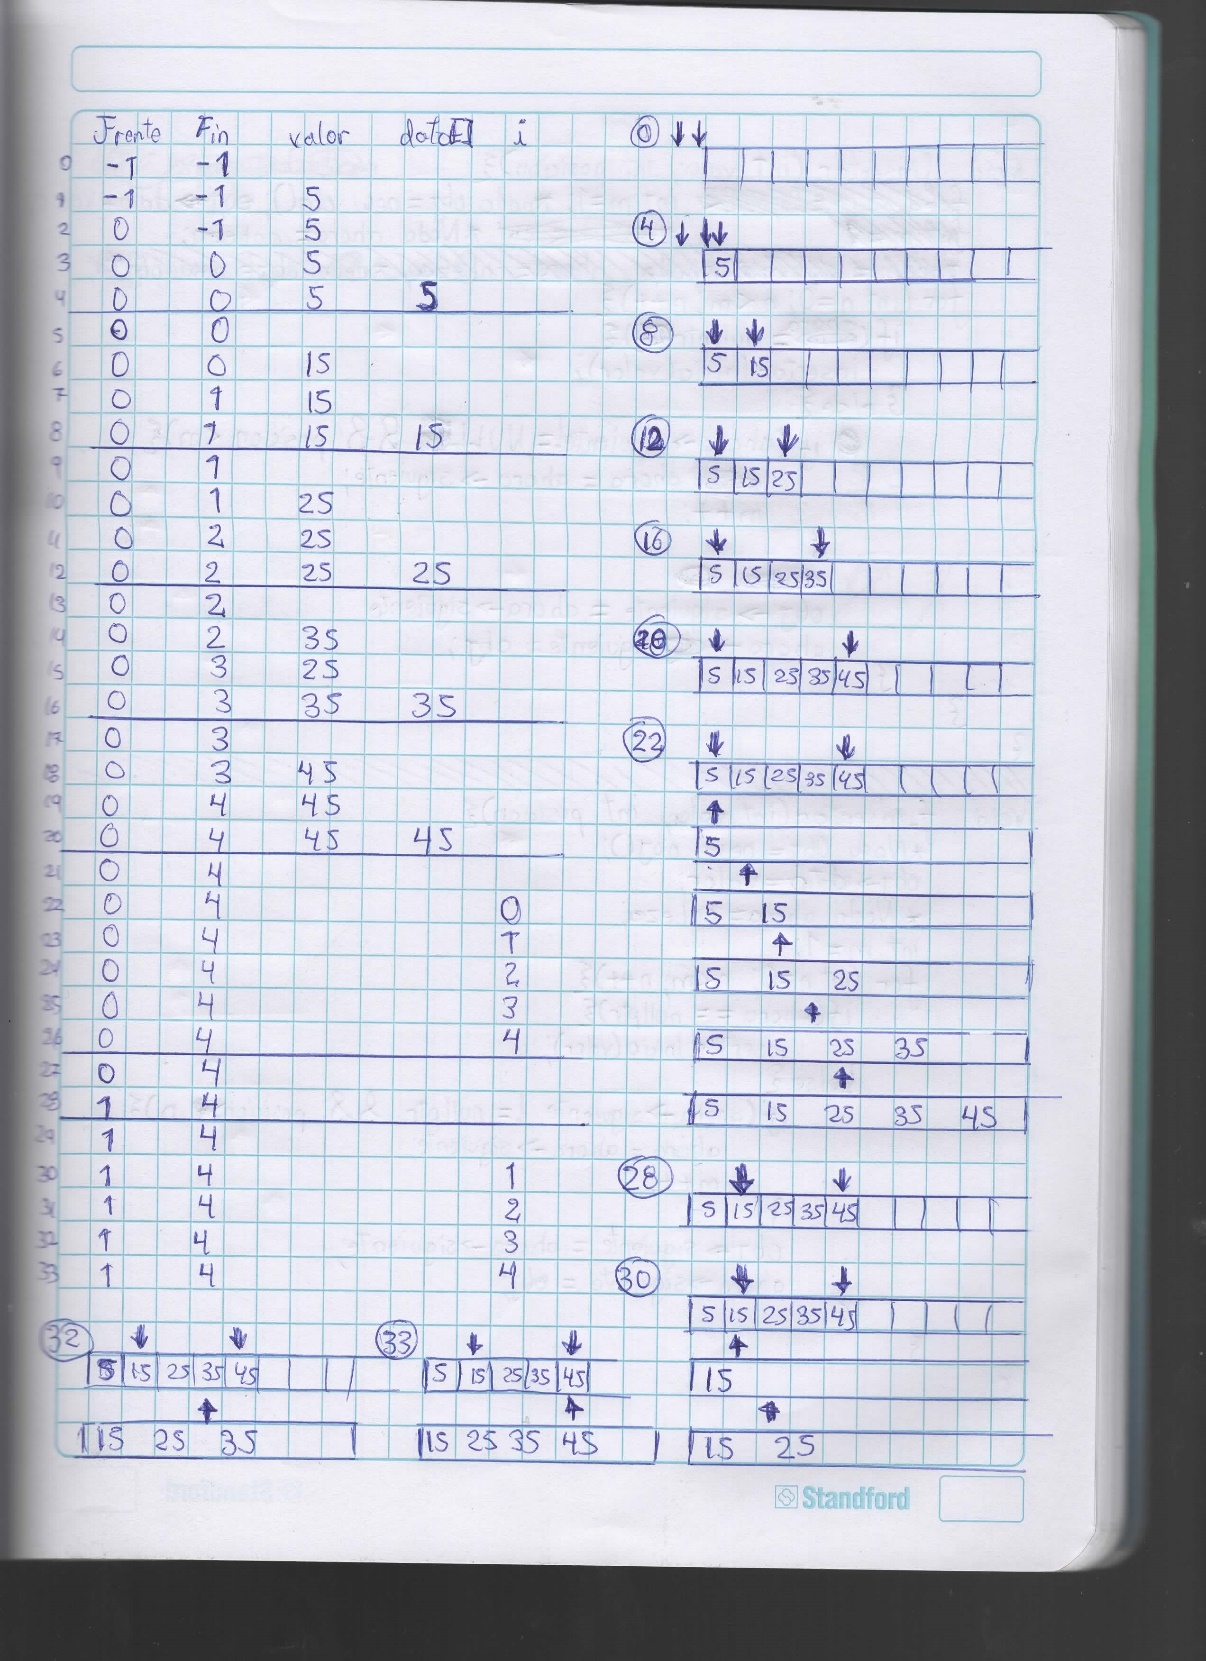 Frente Fin valor dato[] i
0 -1 -1
1 -1 -1 5
2 0 -1 5
3 0 0 5
4 0 0 5 5
5 0 0
6 0 0 15
7 0 1 15
8 0 1 15 15
9 0 1
10 0 1 25
11 0 2 25
12 0 2 25 25
13 0 2
14 0 2 35
15 0 3 25
16 0 3 35 35
17 0 3
18 0 3 45
19 0 4 45
20 0 4 45 45
21 0 4
22 0 4 0
23 0 4 1
24 0 4 2
25 0 4 3
26 0 4 4
27 0 4
28 1 4
29 1 4
30 1 4 1
31 1 4 2
32 1 4 3
33 1 4 4
0 ↓↓
4 ↓ ↓↓
5
8 ↓ ↓
5 15
12 ↓ ↓
5 15 25
16 ↓ ↓
5 15 25 35
20 ↓ ↓
5 15 25 35 45
22 ↓ ↓
5 15 25 35 45
↑
5
↑
5 15
↑
15 15 25
↑
5 15 25 35
↑
5 15 25 35 45
28 ↓ ↓
5 15 25 35 45
30 ↓ ↓
5 15 25 35 45
↑
15
↑
15 25
32 ↓ ↓
5 15 25 35 45
↑
15 25 35
33 ↓ ↓
5 15 25 35 45
↑
15 25 35 45
Standford